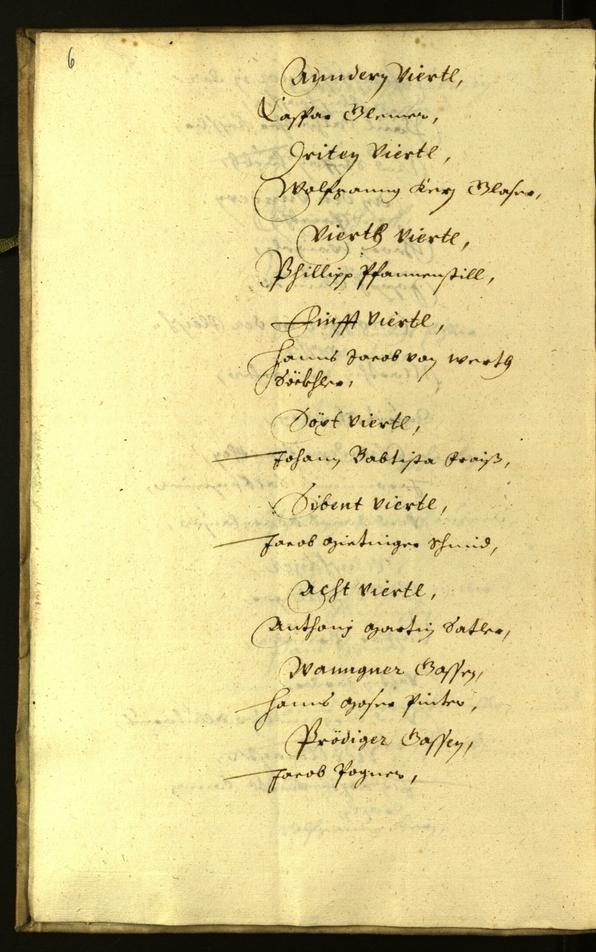 6
Anndern Viertl,
Caspar Clemer,
Driten Viertl,
Wolfganng Kerj Glaser,
Vierth Viertl,
Phillipp Pfannenstill,
Finfft Viertl,
Hanns Jacob von Werth
Söckhler,
Söxt Viertl,
Johann Babtista Kraiß,
Sibent Viertl,
Jacob Mietinger Schmid,
Acht Viertl,
Anthonj Martin Satler,
Wanngner Gassen,
Hanns Moser Pinter,
Prödiger Gassen,
Jacob Pogner,